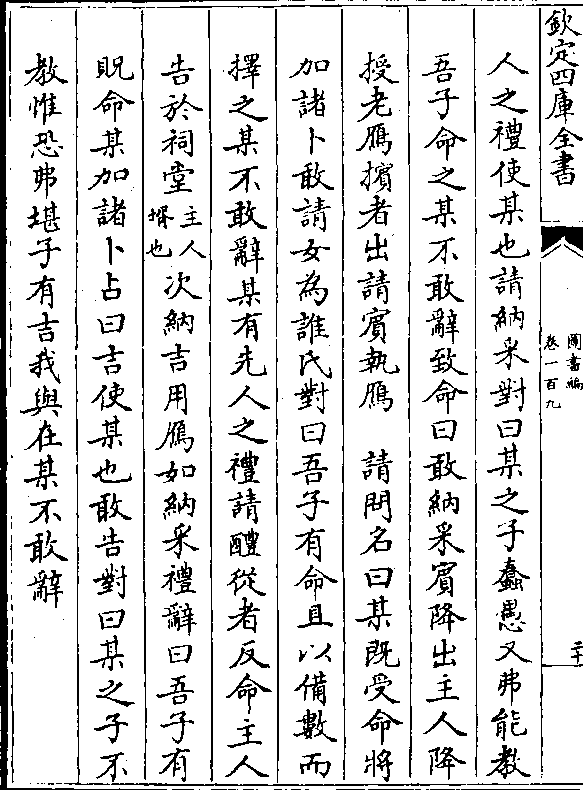 欽定四庫全書
圖書編
卷一百九
二十
人之禮使某也請納采對曰某之子蠢愚又弗能教
吾子命之某不敢辭致命曰敢納采賓降出主人降
授老鴈擯者出請賓執鴈　請問名曰某既受命將
加諸卜敢請女為誰氏對曰吾子有命且以備數而
擇之某不敢辭某有先人之禮請醴從者反命主人
告於祠堂主人壻也次納吉用鴈如納采禮辭曰吾子有
貺命某加諸卜占曰吉使某也敢告對曰某之子不
教惟恐弗堪子有吉我與在某不敢辭